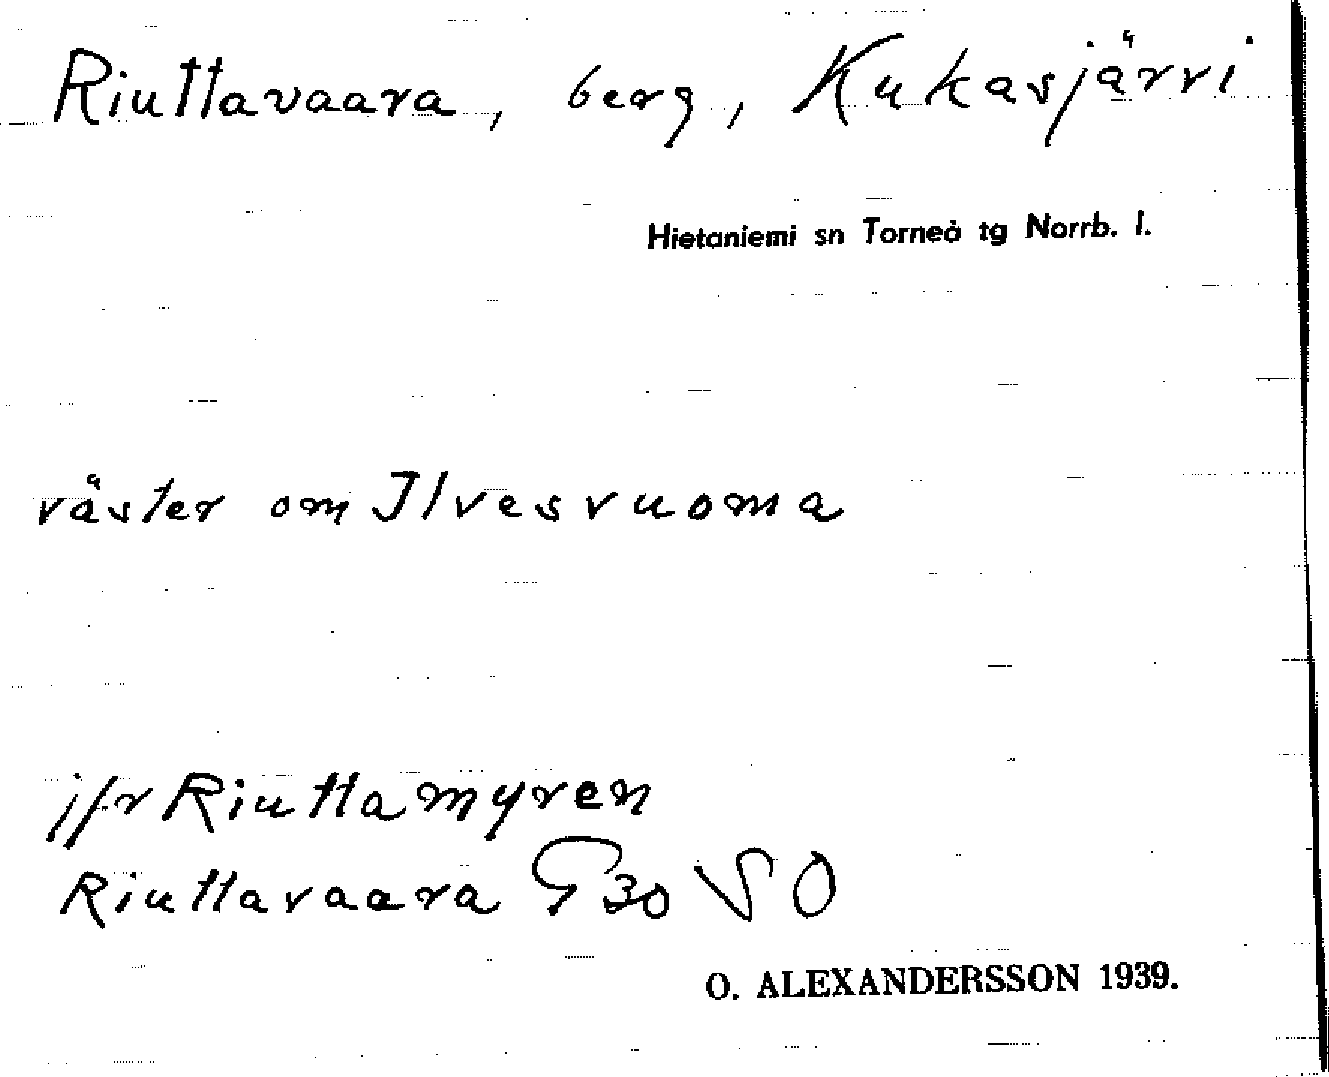 Riuttavaara, berg, Kukasjärvi
Hietaniemi sn Torneå tg Norrb. l.
väster om Ilvesvuoma
jfr Riuttamyren
Riuttavaara G 30 SO
O. ALEXANDERSSON 1939.